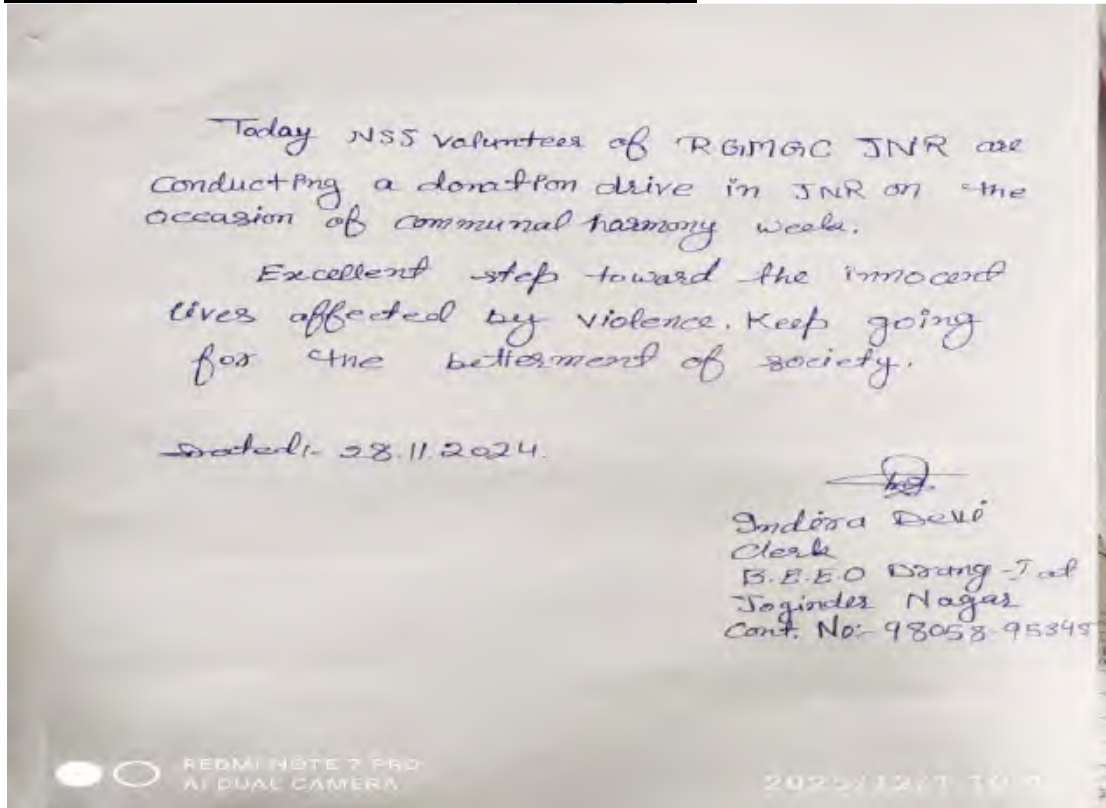 Today NSS Volunteer of RGMGC JNR are
conducting a donation drive in JNR on the
occasion of communal harmony week.
Excellent step toward the innocent
lives affected by violence. Keep going
for the betterment of society.
Dated:- 28.11.2024.
Indira Devi
Clerk
B.E.E.O Drang-I at
Joginder Nagar
Cont. No:- 98058-95345
REDMI NOTE 7 PRO
AI DUAL CAMERA